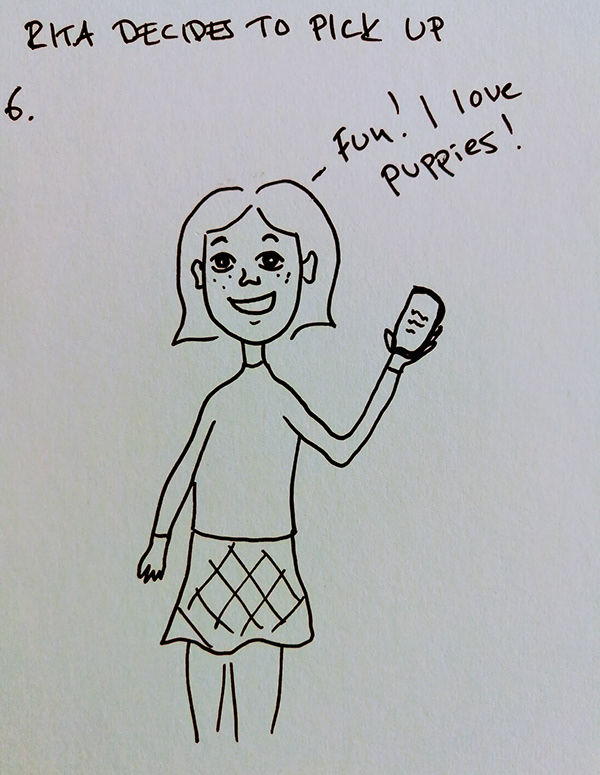 RITA DECIDES TO PICK UP
6.
Fun! I love
puppies!